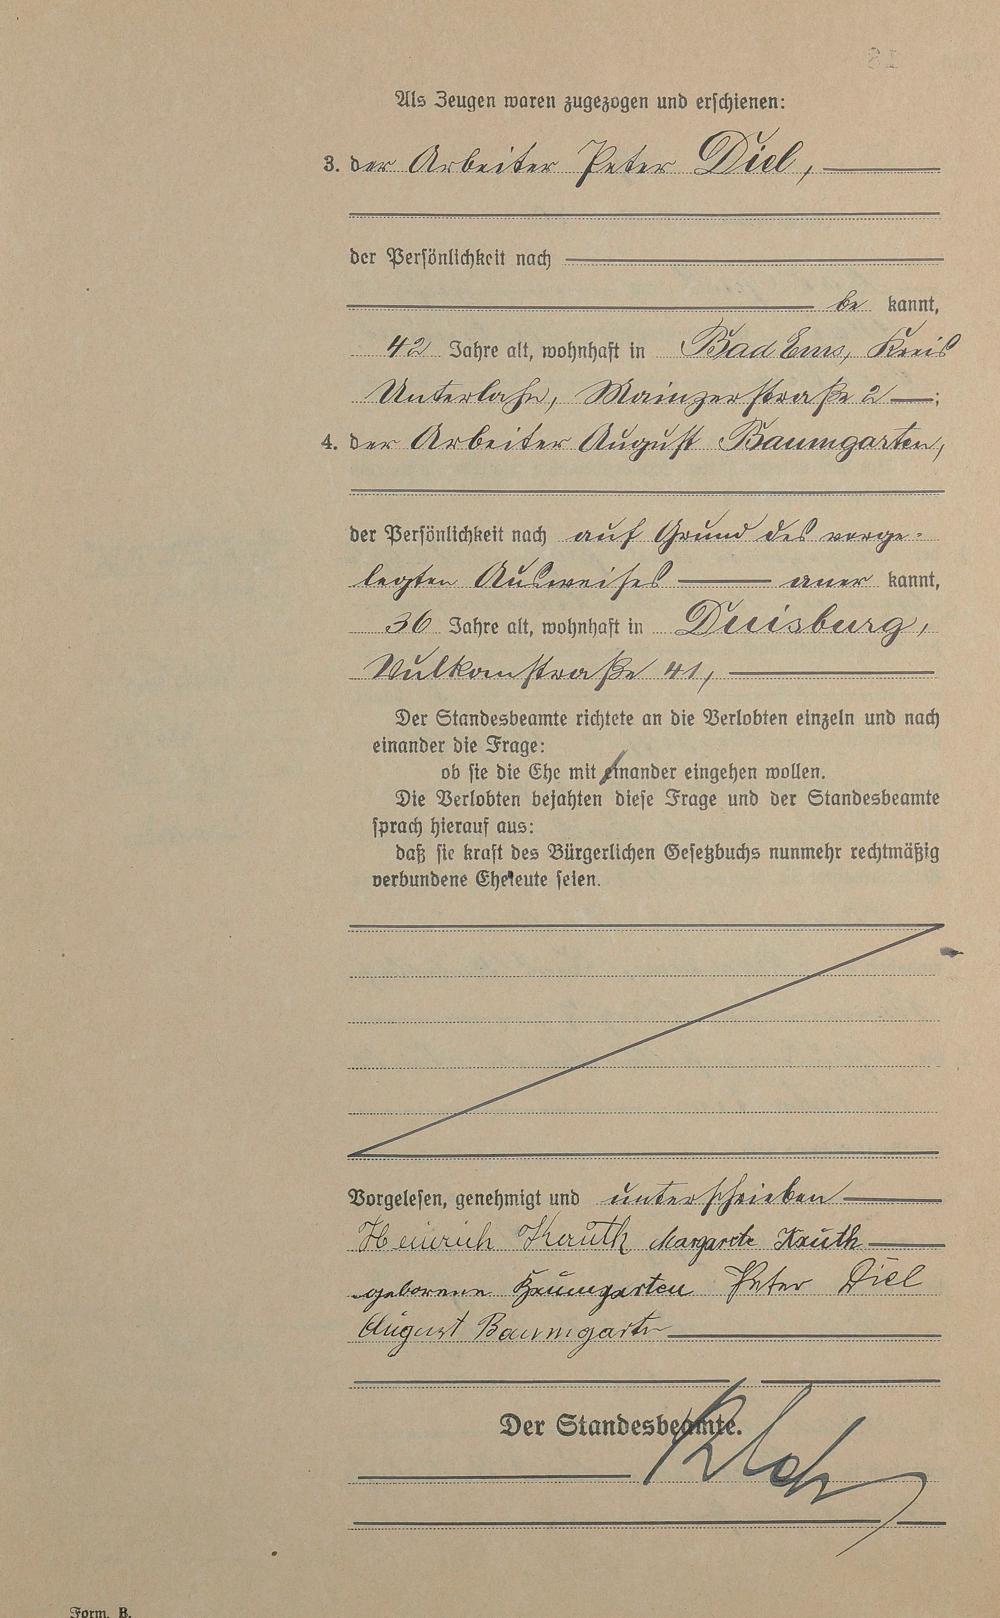 Als Zeugen waren zugezogen und erschienen:
3. der Arbeiter Peter Diel,
der Persönlichkeit nach
be kannt,
42 Jahre alt, wohnhaft in Bad Ems, Kreis
Unterlahn, Mainzerstraße 2 ;
4. der Arbeiter August Baumgarten,
der Persönlichkeit nach auf Grund des vorge-
legten Ausweises aner kannt,
36 Jahre alt, wohnhaft in Duisburg,
Vulkanstraße 41,
Der Standesbeamte richtete an die Verlobten einzeln und nach
einander die Frage:
ob sie die Ehe mit einander eingehen wollen.
Die Verlobten bejahten diese Frage und der Standesbeamte
sprach hierauf aus:
daß sie kraft des Bürgerlichen Gesetzbuchs nunmehr rechtmäßig
verbundene Eheleute seien.
Vorgelesen, genehmigt und unterschrieben
Heinrich Kauth Margarete Kauth
geborene Baumgarten Peter Diel
August Baumgarten
Der Standesbeamte.
Form. B.